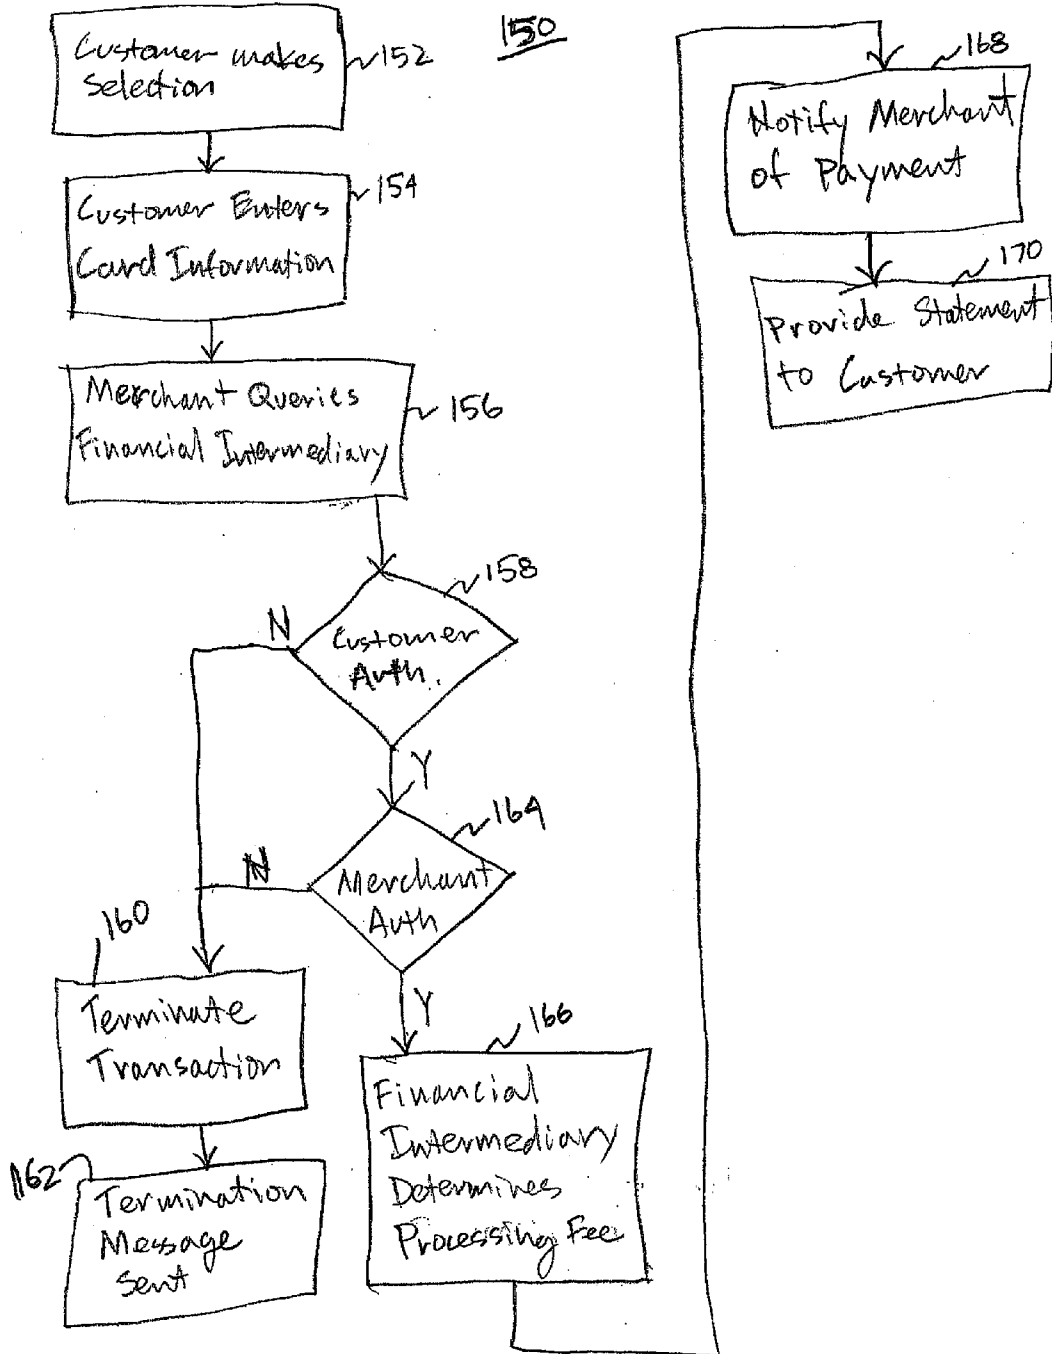 150
Customer makes
Selection
152
Customer Enters
Card Information
154
Merchant Queries
Financial Intermediary
156
158
N
Customer
Auth.
Y
164
N
Merchant
Auth
160
Y
Terminate
Transaction
166
Financial
Intermediary
Determines
Processing Fee
162
Termination
Message
Sent
168
Notify Merchant
of Payment
170
Provide Statement
to Customer